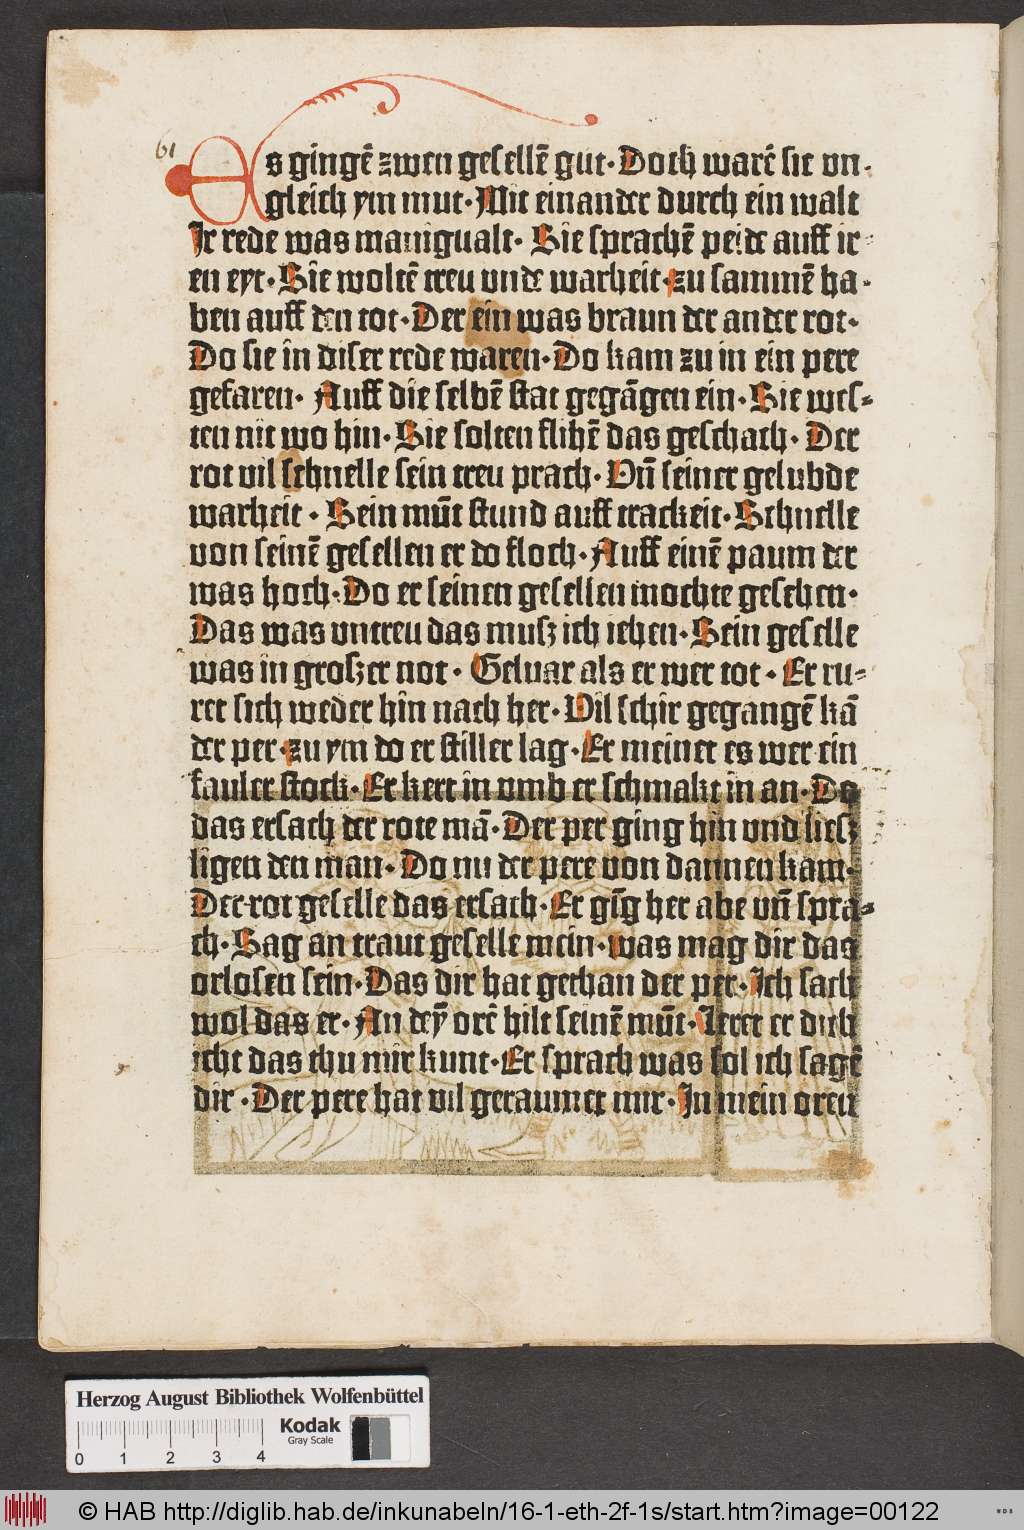 61
Es gingē zwen gesellē gut· Doch warē sie vn·
gleich ym mut· Mit einander durch ein walt
Ir rede was manigualt· Sie sprachē peide auff ir·
en eyt· Sie woltē treu vnde warheit· zu sammē ha·
ben auff den tot· Der ein was braun der ander rot·
Do sie in diser rede waren· Do kam zu in ein pere
gefaren· Auff die selbē stat gegāgen ein· Sie wes-
ten nit wo hin· Sie solten flihē das geschach· Der
rot vil schnelle sein treu prach· Vn̄ seiner gelubde
warheit· Sein mūt stund auff trackeit· Schnelle
von seinē gesellen er do floch· Auff einē paum der
was hoch· Do er seinen gesellen mochte gesehen·
Das was vntreu das musz ich iehen· Sein geselle
was in groszer not· Geluar als er wer tot· Er ru-
ret sich weder hin nach her· Vil schir gegangē kā
der per· zu ym do er stiller lag· Er meinet es wer ein
fauler stock· Er kert in vmb er schmakt in an· Do
das ersach der rote mā· Der per ging hin vnd liesz
ligen den man· Do nu der pere von dannen kam·
Der rot geselle das ersach· Er gīg her abe vn̄ spra-
ch· Sag an traut geselle mein· was mag dir das
orlosen sein· Das dir hat gethan der per· Ich sach
wol das er· An dey̅ orē hilt seinē mūt· Leret er dich
icht das thu mir kunt· Er sprach was sol ich sagē
dir· Der pere hat vil geraumet mir· In mein oren
Herzog August Bibliothek Wolfenbüttel
Kodak
Gray Scale
0 1 2 3 4
© HAB http://diglib.hab.de/inkunabeln/16-1-eth-2f-1s/start.htm?image=00122